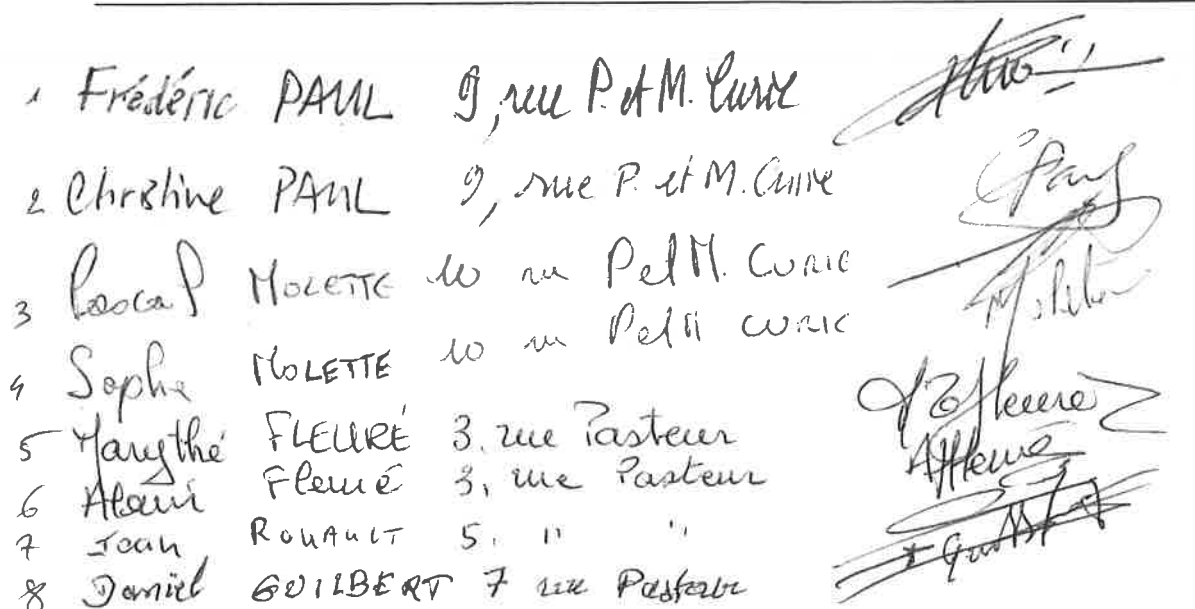 1 Frédéric PAUL 9, rue P. et M. Curie
2 Christine PAUL 9, rue P. et M. Curie
3 Pascal MOLETTE 10 rue P et M. CURIE
4 Sophie MOLETTE 10 rue P et M CURIE
5 Marythé FLEURÉ 3. rue Pasteur
6 Alain Fleuré 3, rue Pasteur
7 Jean ROUAULT 5. " "
8 Daniel GUILBERT 7 rue Pasteur